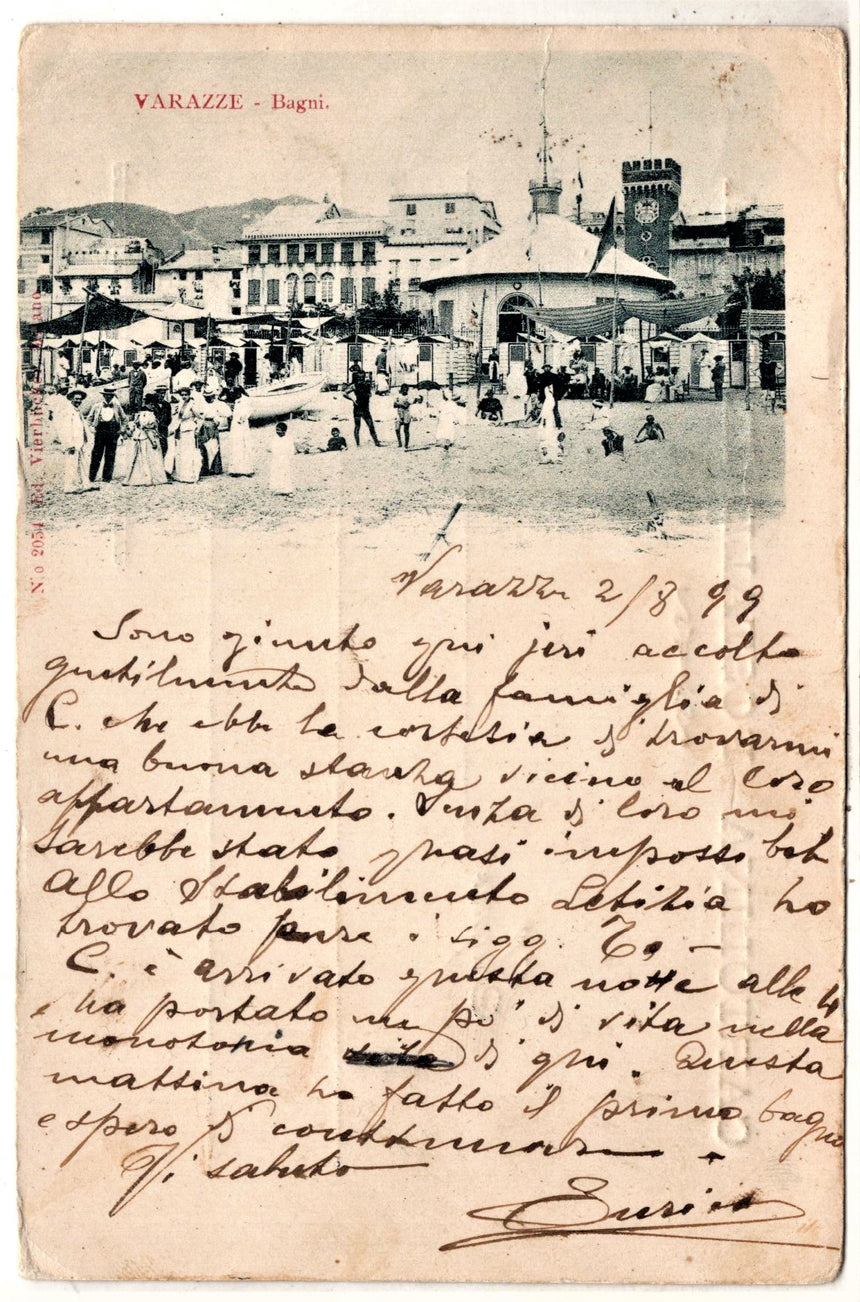 VARAZZE - Bagni.
N.o 2054 Ed. Vierbücher
Varazze 2/8 99
Sono giunto qui jeri accolto
gentilmente dalla famiglia di
C. che ebbe la cortesia di trovarmi
una buona stanza vicino al loro
appartamento. Senza di loro mi
sarebbe stato quasi impossibile
Allo Stabilimento Letizia ho
trovato pure i sigg.
C. è arrivato questa notte alle 4
ha portato un po' di vita nella
monotonia di qui. Questa
mattina ho fatto il primo bagno
e spero di continuare.
Vi saluto
Enrico